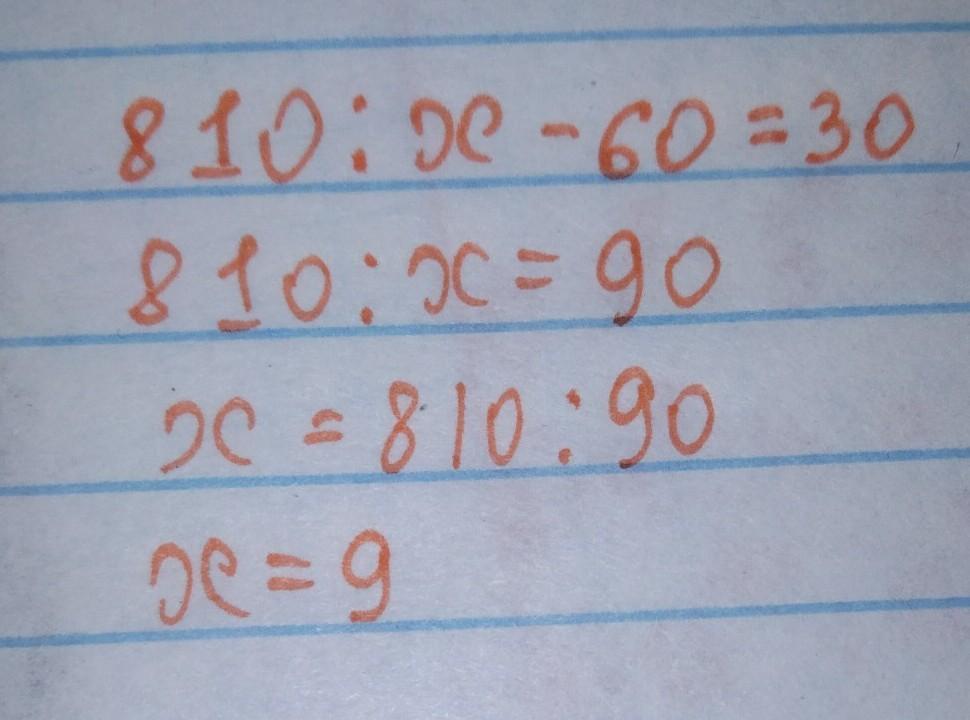 810 : x - 60 = 30
810 : x = 90
x = 810 : 90
x = 9